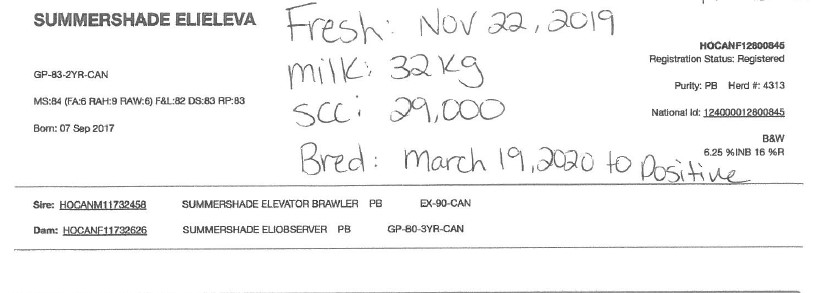 SUMMERSHADE ELIELEVA
Fresh: Nov 22, 2019
HOCANF12800845
Registration Status: Registered
GP-83-2YR-CAN
milk: 32kg
Purity: PB Herd #: 4313
MS:84 (FA:6 RAH:9 RAW:6) F&L:82 DS:83 RP:83
SCC: 29,000
National Id: 124000012800845
Born: 07 Sep 2017
B&W
6.25 %INB 16 %R
Bred: March 19, 2020 to Positive
Sire: HOCANM11732458 SUMMERSHADE ELEVATOR BRAWLER PB EX-90-CAN
Dam: HOCANF11732626 SUMMERSHADE ELIOBSERVER PB GP-80-3YR-CAN